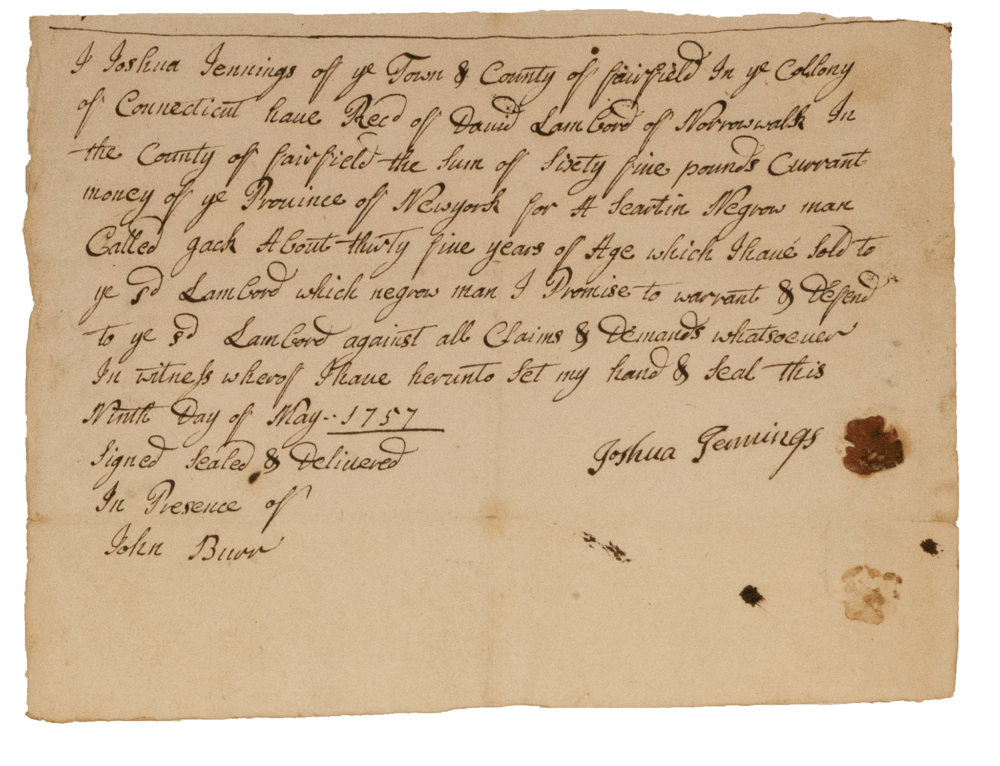 I Joshua Jennings of ye Town & County of fairfield In ye Collony
of Connecticut have Recd of David Lambord of Norrowwalk In
the County of fairfield the Sum of Sixty five pounds Currant
money of ye Province of Newyork for A Seartin Negrow man
Called gack About thirty five years of Age which I have Sold to
ye sd Lambord which negrow man I Promise to warrant & Defend
to ye sd Lambord against all Claims & Demands whatsoever
In witness wherof I have herunto Set my hand & Seal this
Ninth Day of May - 1757
Signed Sealed & Delivered
Joshua Jennings
In Presence of
John Burr